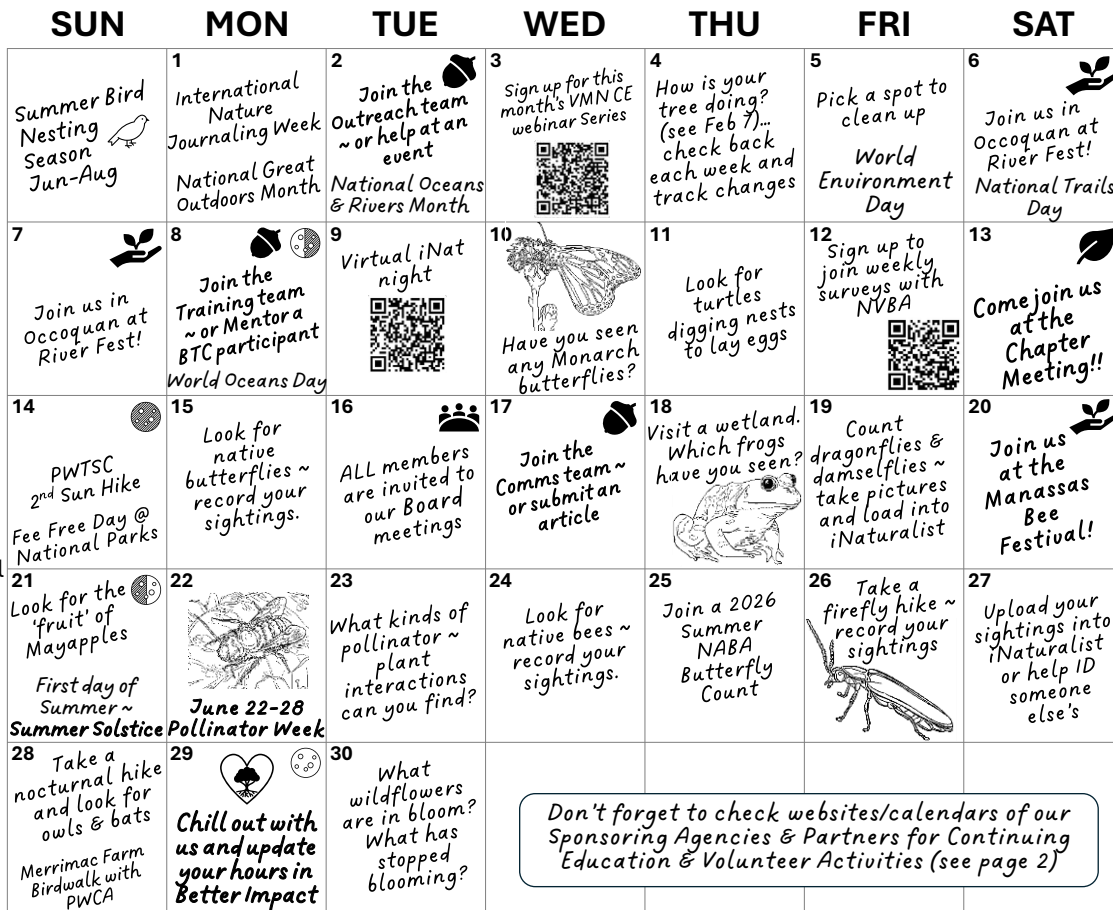 SUN MON TUE WED THU FRI SAT
Summer Bird
Nesting
Season
Jun-Aug
1
International
Nature
Journaling Week
National Great
Outdoors Month
2
Join the
Outreach team
~ or help at an
event
National Oceans
& Rivers Month
3
Sign up for this
month's VMN CE
webinar Series
4
How is your
tree doing?
(see Feb 7)...
check back
each week and
track changes
5
Pick a spot to
clean up
World
Environment
Day
6
Join us in
Occoquan at
River Fest!
National Trails
Day
7
Join us in
Occoquan at
River Fest!
8
Join the
Training team
~ or Mentor a
BTC participant
World Oceans Day
9
Virtual iNat
night
10
Have you seen
any Monarch
butterflies?
11
Look for
turtles
digging nests
to lay eggs
12
Sign up to
join weekly
surveys with
NVBA
13
Come join us
at the
Chapter
Meeting!!
14
PWTSC
2nd Sun Hike
Fee Free Day @
National Parks
15
Look for
native
butterflies ~
record your
sightings.
16
ALL members
are invited to
our Board
meetings
17
Join the
Comms team ~
or submit an
article
18
Visit a wetland.
Which frogs
have you seen?
19
Count
dragonflies &
damselflies ~
take pictures
and load into
iNaturalist
20
Join us
at the
Manassas
Bee
Festival!
21
Look for the
'fruit' of
Mayapples
First day of
Summer ~
Summer Solstice
22
June 22-28
Pollinator Week
23
What kinds of
pollinator ~
plant
interactions
can you find?
24
Look for
native bees ~
record your
sightings.
25
Join a 2026
Summer
NABA
Butterfly
Count
26
Take a
firefly hike ~
record your
sightings
27
Upload your
sightings into
iNaturalist
or help ID
someone
else's
28
Take a
nocturnal hike
and look for
owls & bats
Merrimac Farm
Birdwalk with
PWCA
29
Chill out with
us and update
your hours in
Better Impact
30
What
wildflowers
are in bloom?
What has
stopped
blooming?
Don't forget to check websites/calendars of our
Sponsoring Agencies & Partners for Continuing
Education & Volunteer Activities (see page 2)